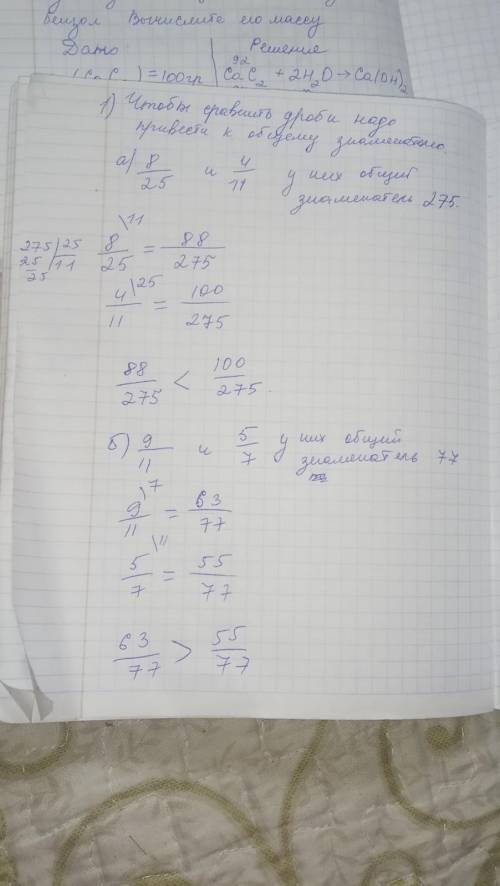 бензол Вычислите его массу
Дано Решение
= 100гр
92
CaC2 + 2H2O → Ca(OH)2
1) Чтобы сравнить дроби надо
привести к общему знаменателю.
а) 8/25 и 4/11 у них общий
знаменатель 275.
275 | 25
25 | 11
25
8/25 \11 = 88/275
4/11 \25 = 100/275
88/275 < 100/275.
б) 9/11 и 5/7 у них общий
знаменатель 77
9/11 \7 = 63/77
5/7 \11 = 55/77
63/77 > 55/77